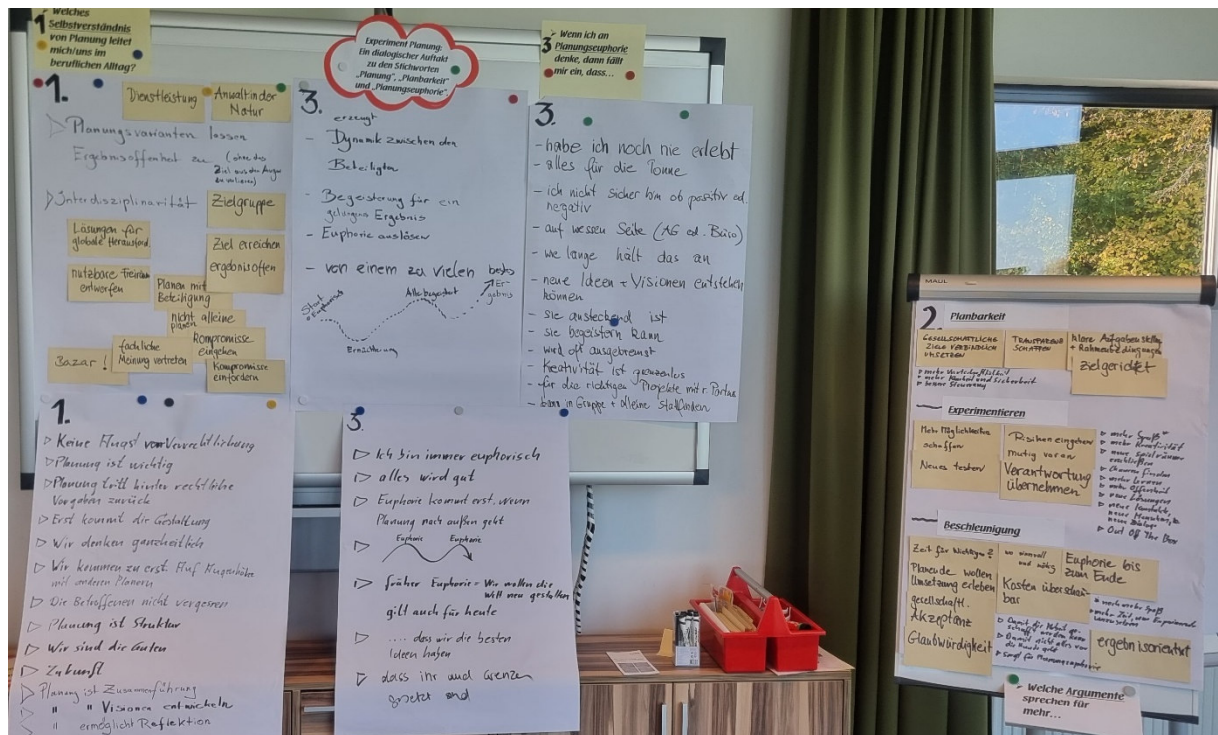 1
Welches
Selbstverständnis
von Planung leitet
mich/uns im
beruflichen Alltag?
Experiment Planung:
Ein dialogischer Auftakt
zu den Stichworten
„Planung", „Planbarkeit"
und „Planungseuphorie".
3
Wenn ich an
Planungseuphorie
denke, dann fällt
mir ein, dass...
1.
Dienstleistung
Anwalt in der
Natur
Planungsvarianten lassen
Ergebnisoffenheit zu (ohne das
Ziel aus den Augen
zu verlieren)
Interdisziplinarität
Zielgruppe
Lösungen für
globale Herausford.
Ziel erreichen
ergebnisoffen
nutzbare
entworfen
Planen mit
Beteiligung
nicht alleine
planen
Kompromisse
eingehen
Bazar!
fachliche
Meinung vertreten
Kompromisse
einfordern
3.
erzeugt
- Dynamik zwischen den
Beteiligten
- Begeisterung für ein
gelungenes Ergebnis
- Euphorie auslösen
- von einem zu vielen
bestes
Ergebnis
Start
Euphorisch
Alle begeistert
Ernüchterung
3.
- habe ich noch nie erlebt
- alles für die Tonne
- ich nicht sicher bin ob positiv od.
negativ
- auf wessen Seite (AG od. Büro)
- wie lange hält das an
- neue Ideen + Visionen entstehen
können
- sie ansteckend ist
- sie begeistern kann
- wird oft ausgebremst
- Kreativität ist grenzenlos
- für die richtigen Projekte mit r. Partner
- kann in Gruppe + alleine stattfinden
1.
Keine Angst vor Verrechtlichung
Planung ist wichtig
Planung tritt hinter rechtliche
Vorgaben zurück
Erst kommt die Gestaltung
Wir denken ganzheitlich
Wir kommen zu erst. Auf Augenhöhe
mit anderen Planern
Die Betroffenen nicht vergessen
Planung ist Struktur
Wir sind die Guten
Zukunft
Planung ist Zusammenführung
" " Visionen entwickeln
" ermöglicht Reflektion
3.
Ich bin immer euphorisch
alles wird gut
Euphorie kommt erst, wenn
Planung nach außen geht
Euphorie Euphorie
früher Euphorie = Wir wollen die
Welt neu gestalten
gilt auch für heute
.... dass wir die besten
Ideen haben
dass ihr auch Grenzen
gesetzt sind
MAUL
2.
Planbarkeit
GESELLSCHAFTLICHE
ZIELE VERBINDLICH
UMSETZEN
TRANSPARENZ
SCHAFFEN
klare Aufgaben stellen
+ Rahmenbedingungen
zielgerichtet
mehr Wirtschaftlichkeit
mehr Klarheit und Sicherheit
bessere Steuerung
Experimentieren
Mehr Möglichkeiten
schaffen
Neues testen
Risiken eingehen
mutig voran
Verantwortung
übernehmen
mehr Spaß
mehr Kreativität
neue Spielräume
erschließen
Chancen finden
mehr Lernen
mehr Offenheit
neue Lösungen
neue
neue Menschen,
neuer Dialog
Out Of The Box
Beschleunigung
Zeit für Wichtiges
Planende wollen
Umsetzung erleben
gesellschaftl.
Akzeptanz
Glaubwürdigkeit
wo sinnvoll
und nötig
Kosten überschau-
bar
Euphorie bis
zum Ende
noch mehr Spaß
mehr Zeit zum Experimente
Damit die Arbeit ge-
schafft werden kann
Damit nicht alles vor
die Hunde geht
sorgt für Planungseuphorie
ergebnisorientiert
Welche Argumente
sprechen für
mehr...